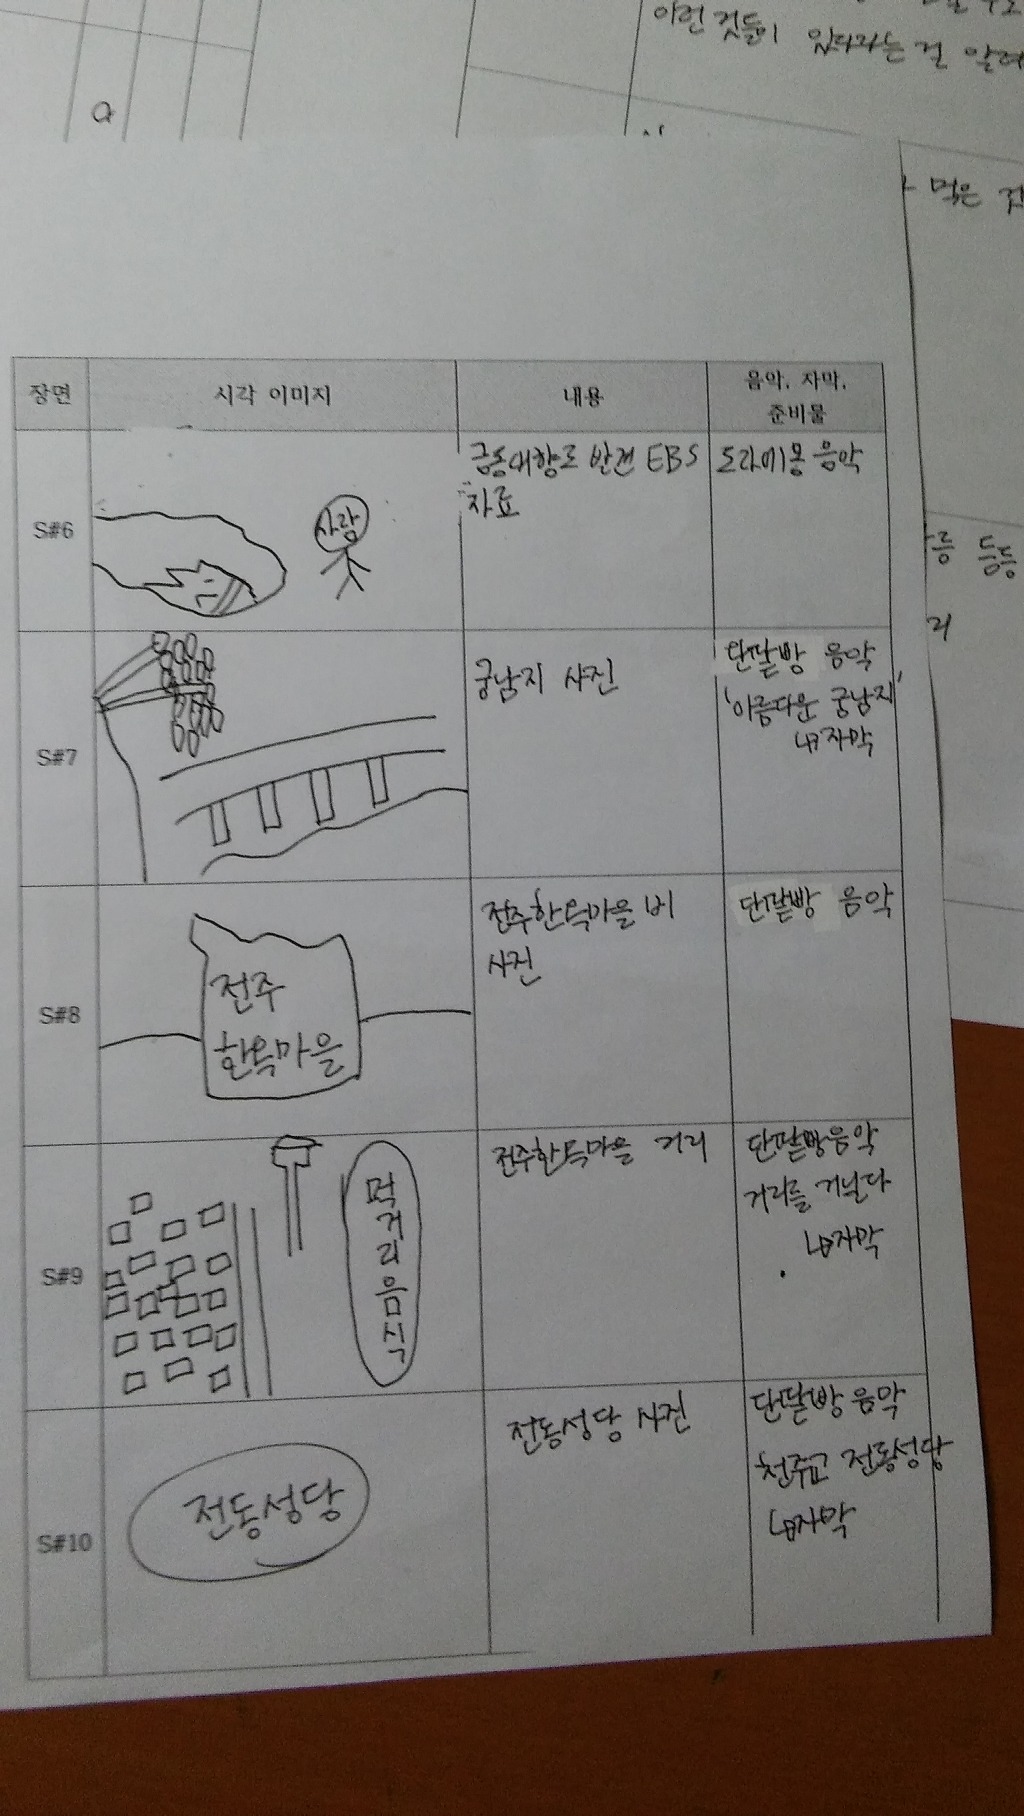 이런 것들이 있다라는 걸 알려
먹은
등등
리
장면 시각 이미지 내용 음악, 자막, 준비물
S#6
사람
금동대향로 발견 EBS
자료
도라에몽 음악
S#7
궁남지 사진
단팥빵 음악
'아름다운 궁남지'
↳자막
S#8
전주
한옥마을
전주한옥마을 비
사진
단팥빵 음악
S#9
먹거리음식
전주한옥마을 거리
단팥빵음악
거리를 거닐다
↳자막
S#10
전동성당
전동성당 사진
단팥빵음악
천주교 전동성당
↳자막